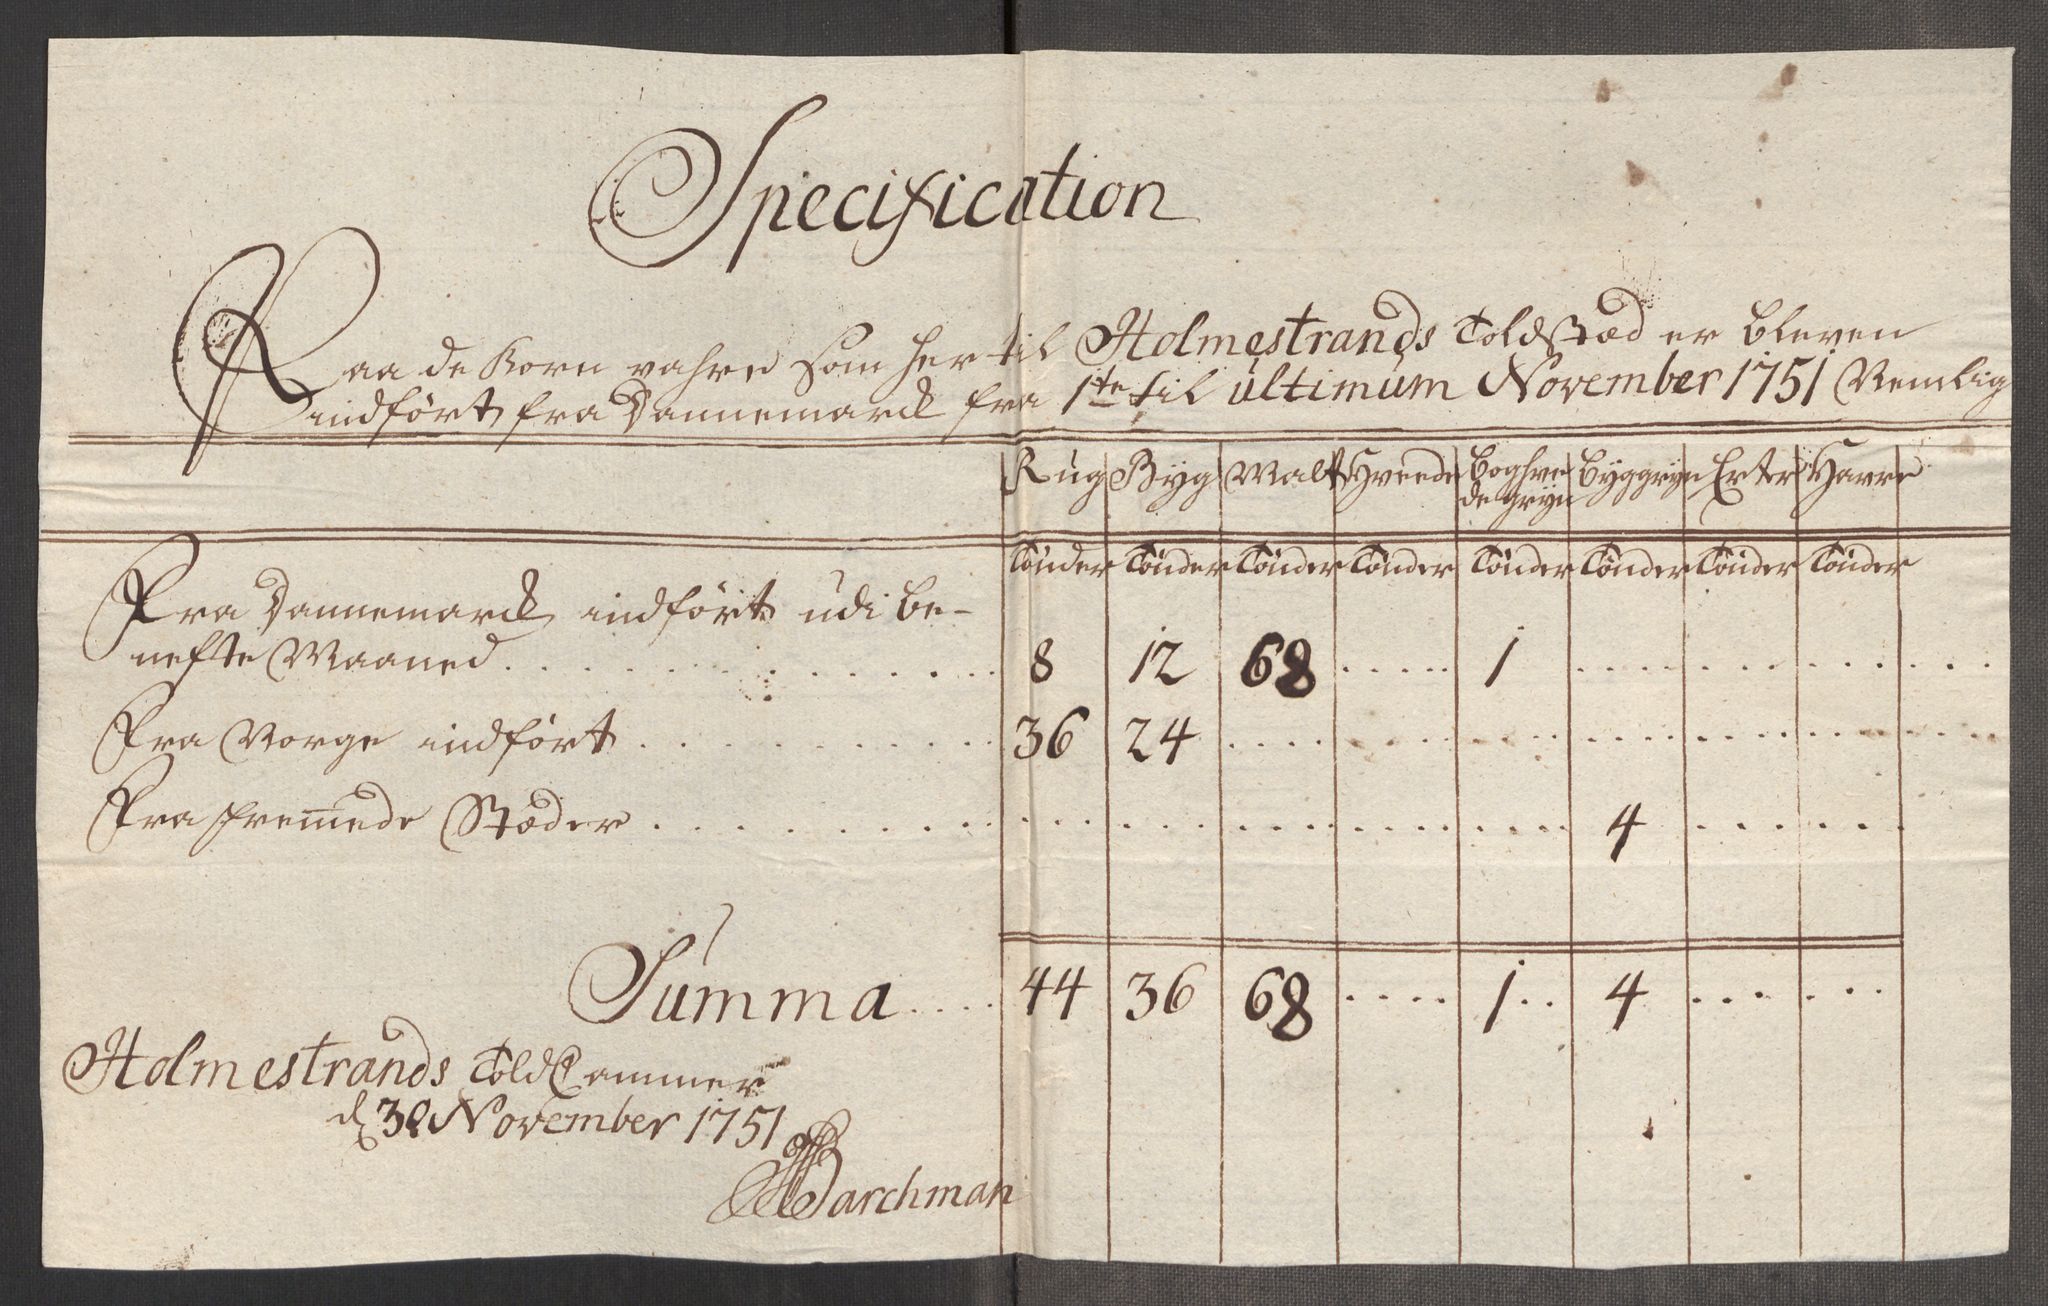 Specification
Paa de Korn vahre som her til Holmestrands Toldstæd er bleven
indført fra Dannemarck fra 1te til ultimum November 1751 Nemlig
Rug Byg Malt Hveede Boghve Byggryn Erter Havre
de gryn
Tønder Tønder Tønder Tønder Tønder Tønder Tønder Tønder
Fra Dannemarck indført udi be-
nefte Maaned . . . . . 8 12 68 ..... 1 . . . . .
Fra Norge indført . . . . . 36 24 . . . . .
Fra fremmede Stæder . . . . . 4 . . . . .
Summa .... 44 36 68 .... 1 .. 4 ... ...
Holmestrands Told Cammer
d 30 November 1751
Barchman